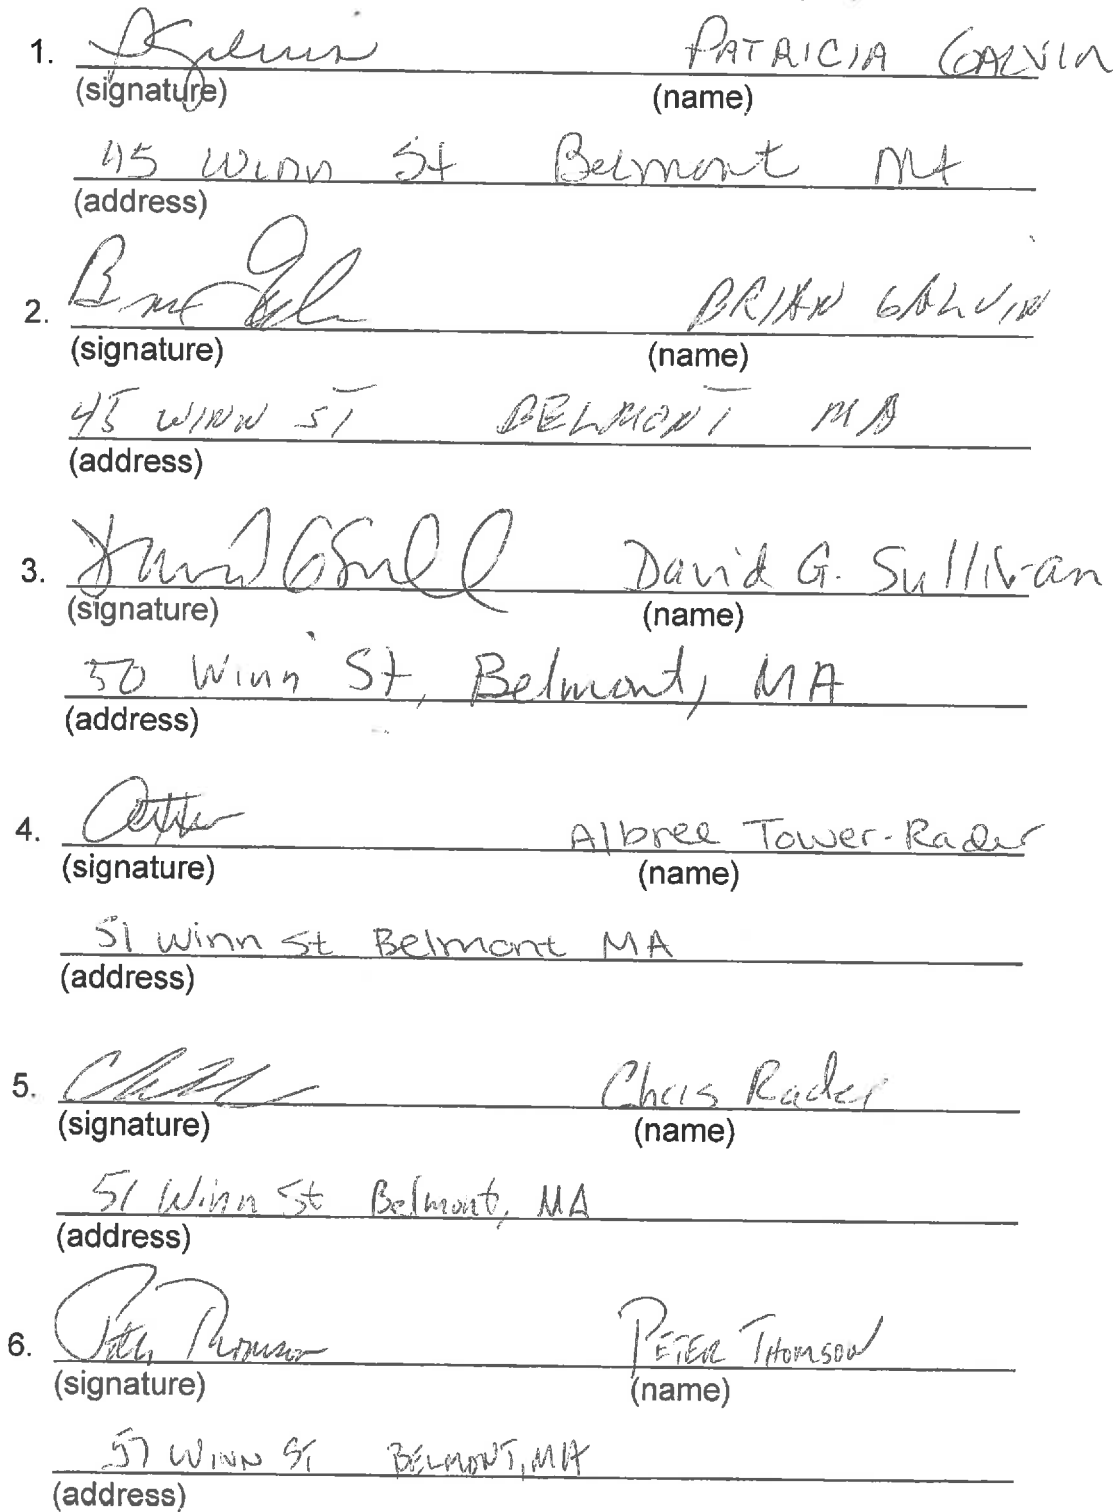 1. PATRICIA GALVIN
(signature) (name)
45 Winn St Belmont MA
(address)
2. BRIAN GALVIN
(signature) (name)
45 WINN ST BELMONT MA
(address)
3. David G. Sullivan
(signature) (name)
50 Winn St, Belmont, MA
(address)
4. Albree Tower-Rader
(signature) (name)
51 Winn St Belmont MA
(address)
5. Chris Rader
(signature) (name)
51 Winn St Belmont, MA
(address)
6. Peter Thomson PETER THOMSON
(signature) (name)
57 WINN ST BELMONT, MA
(address)